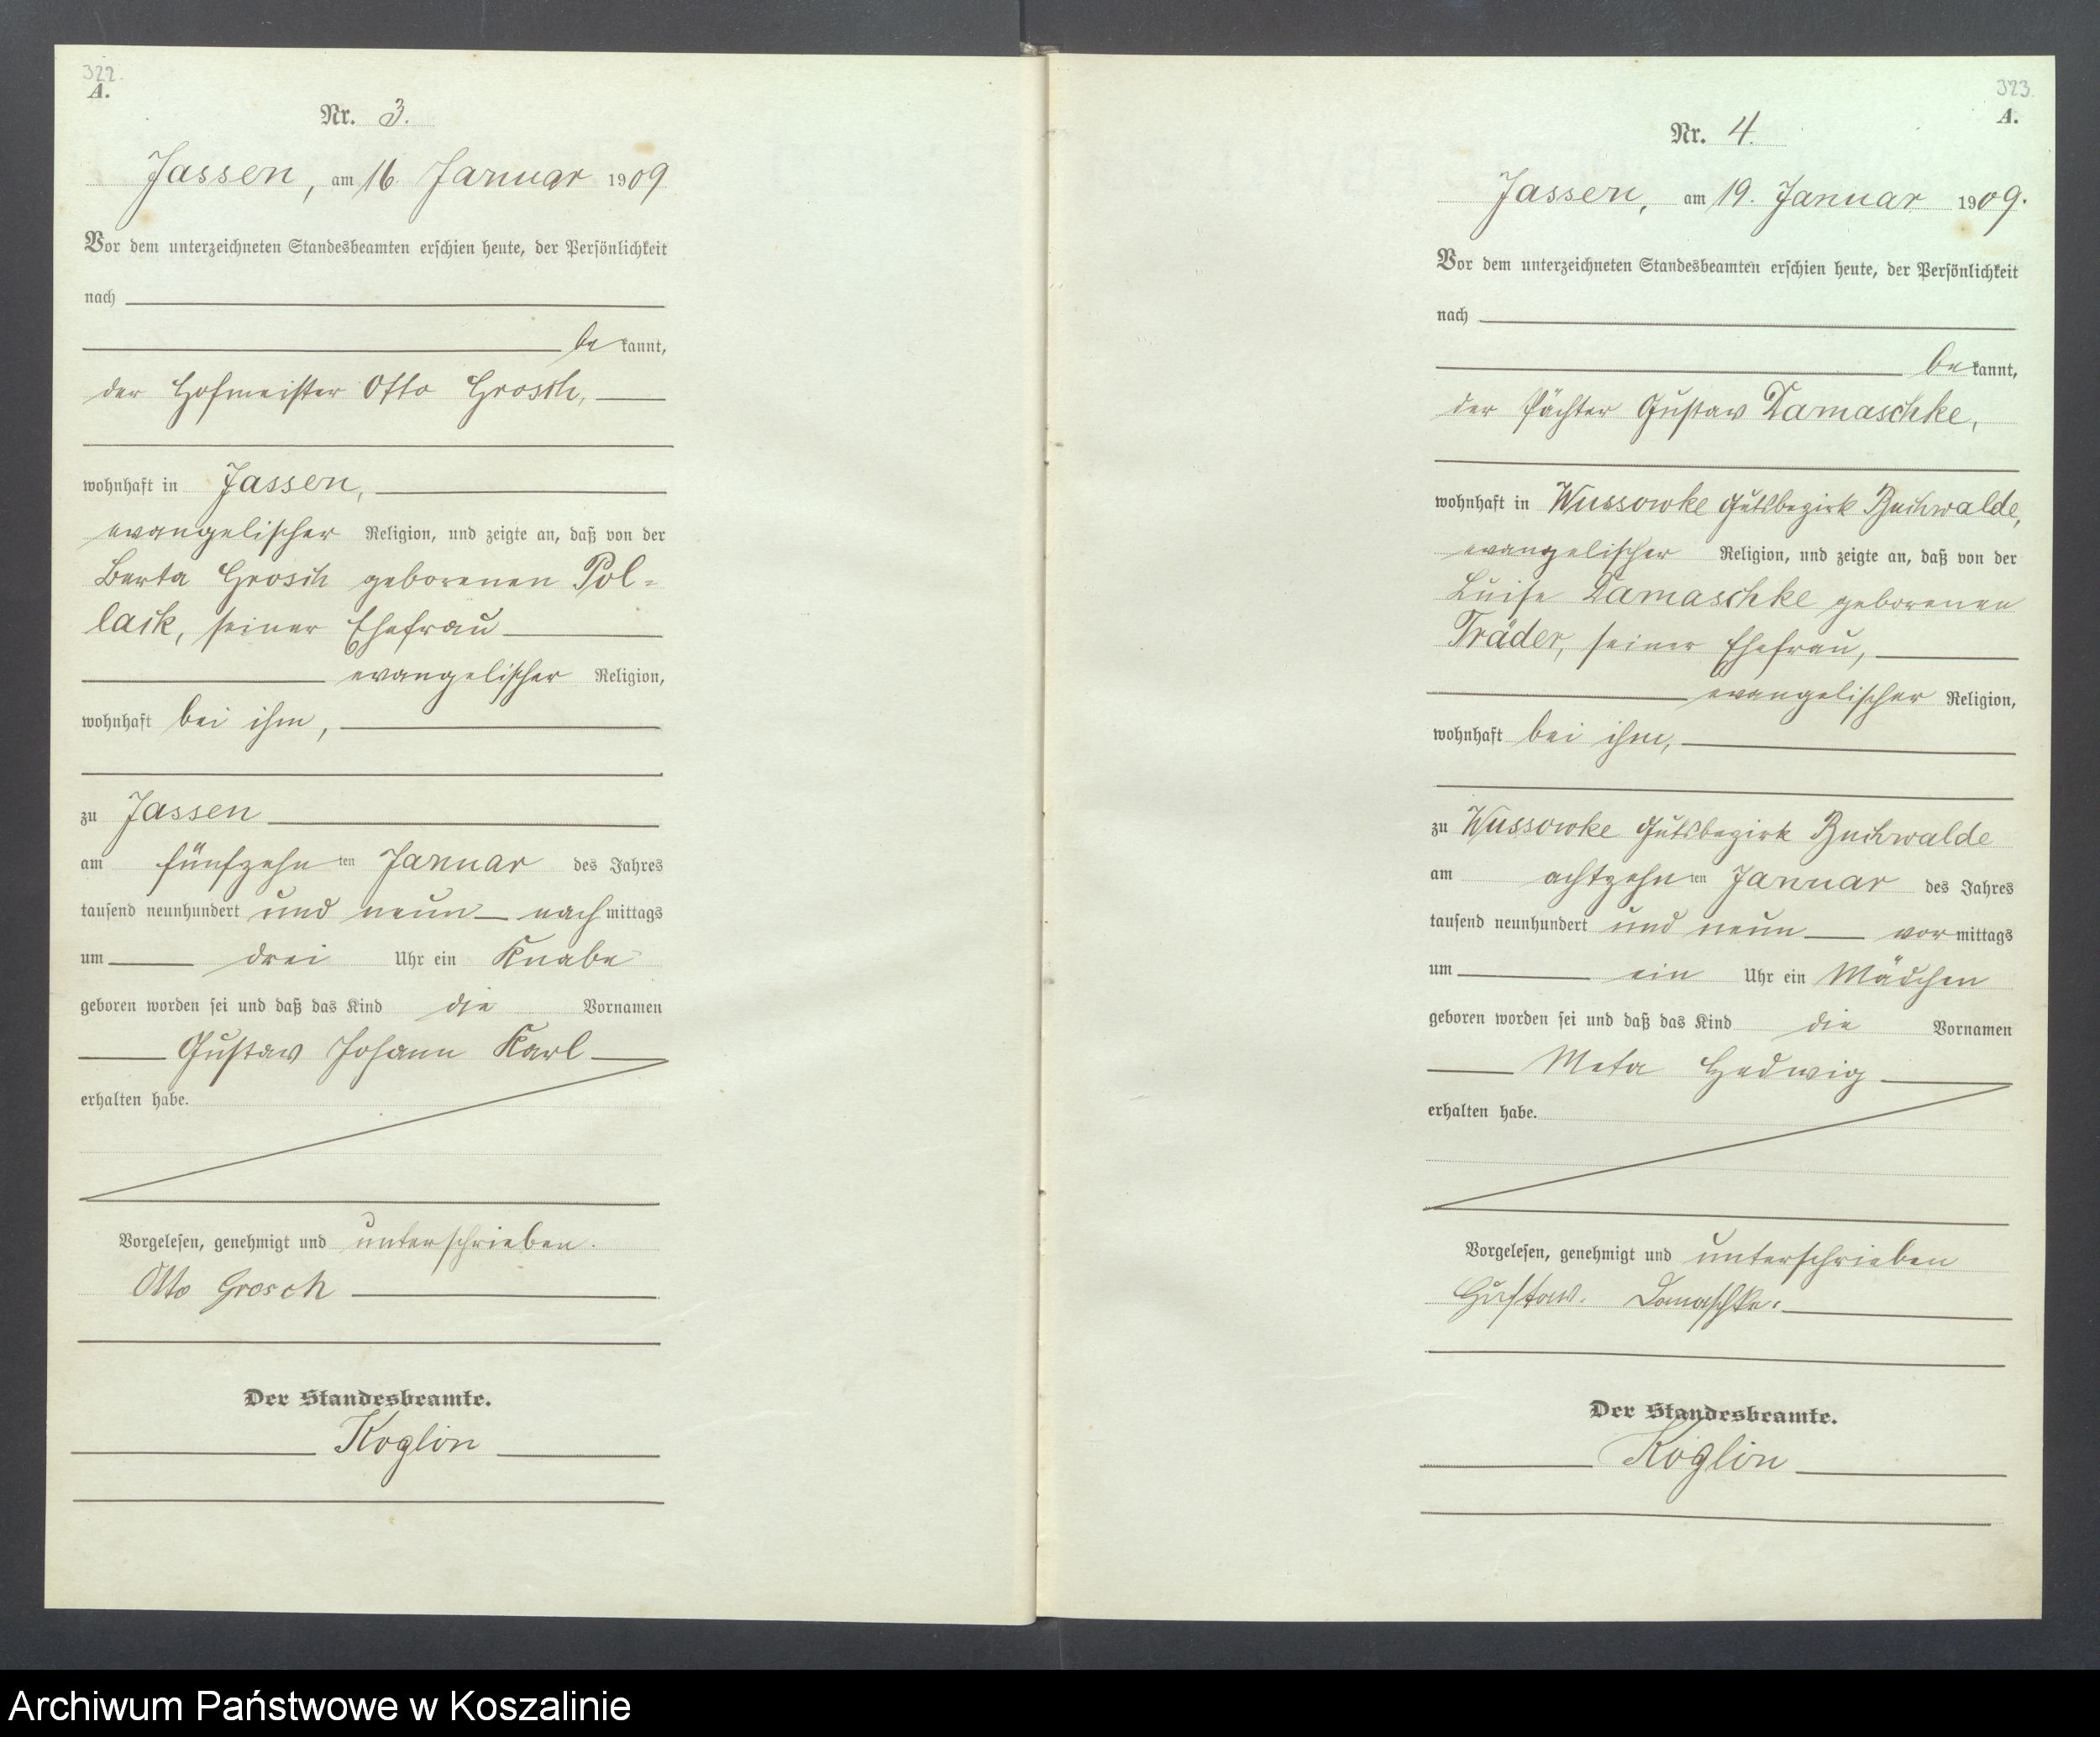 322.
A.
Nr. 3.
Jassen, am 16. Januar 1909
Vor dem unterzeichneten Standesbeamten erschien heute, der Persönlichkeit
nach
be kannt,
der Hofmeister Otto Grosch,
wohnhaft in Jassen,
evangelischer Religion, und zeigte an, daß von der
Berta Grosch geborenen Pol=
lack, seiner Ehefrau
evangelischer Religion,
wohnhaft bei ihm,
zu Jassen
am fünfzehn ten Januar des Jahres
tausend neunhundert und neun nach mittags
um drei Uhr ein Knabe
geboren worden sei und daß das Kind die Vornamen
Gustav Johann Karl
erhalten habe.
Vorgelesen, genehmigt und unterschrieben.
Otto Grosch
Der Standesbeamte.
Koglin
323.
A.
Nr. 4.
Jassen, am 19. Januar 1909.
Vor dem unterzeichneten Standesbeamten erschien heute, der Persönlichkeit
nach
be kannt,
der Pächter Gustav Damaschke,
wohnhaft in Wussowke Gutsbezirk Buchwalde,
evangelischer Religion, und zeigte an, daß von der
Luise Damaschke geborenen
Träder, seiner Ehefrau,
evangelischer Religion,
wohnhaft bei ihm,
zu Wussowke Gutsbezirk Buchwalde
am achtzehn ten Januar des Jahres
tausend neunhundert und neun vor mittags
um ein Uhr ein Mädchen
geboren worden sei und daß das Kind die Vornamen
Meta Hedwig
erhalten habe.
Vorgelesen, genehmigt und unterschrieben
Gustav. Damaschke.
Der Standesbeamte.
Koglin
Archiwum Państwowe w Koszalinie